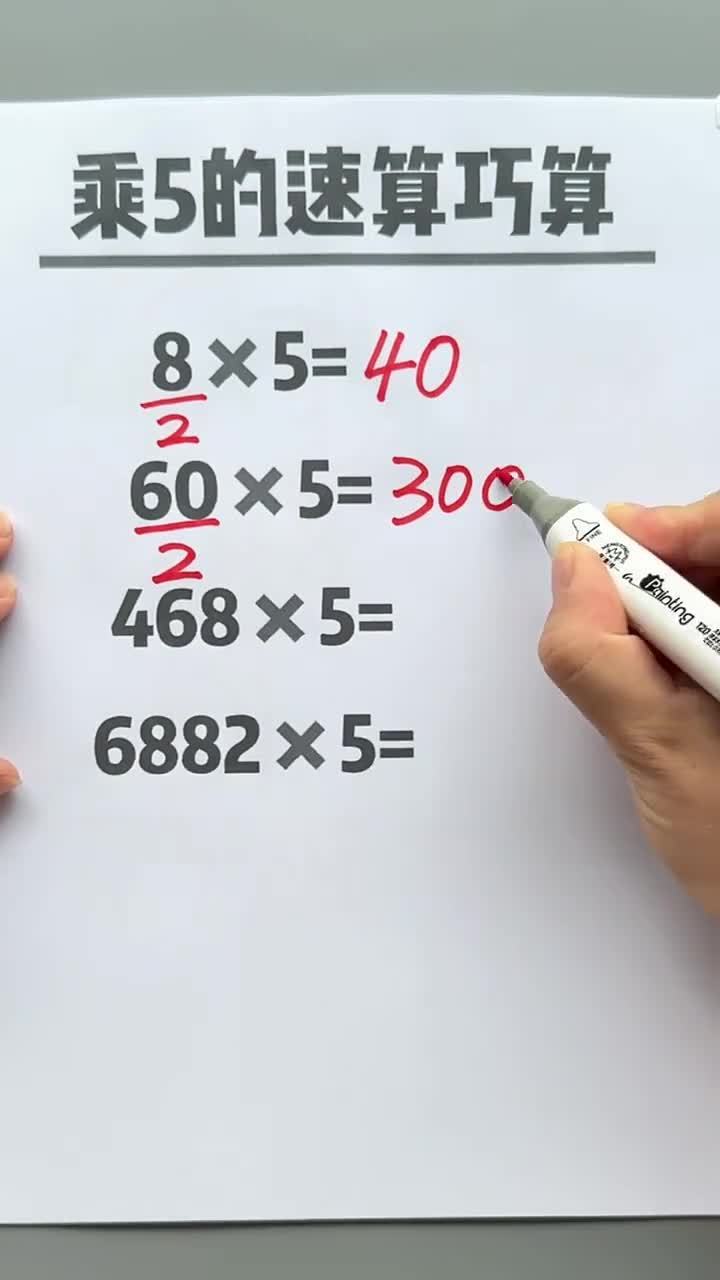 乘5的速算巧算
8×5=40
2
60×5=300
2
468×5=
6882×5=
FINE
Painting